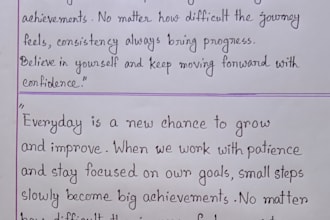 achievements. No matter how difficult the journey
feels, consistency always bring progress.
Believe in yourself and keep moving forward with
confidence."
"
Everyday is a new chance to grow
and improve. When we work with patience
and stay focused on our goals, small steps
slowly become big achievements. No matter
how difficult the